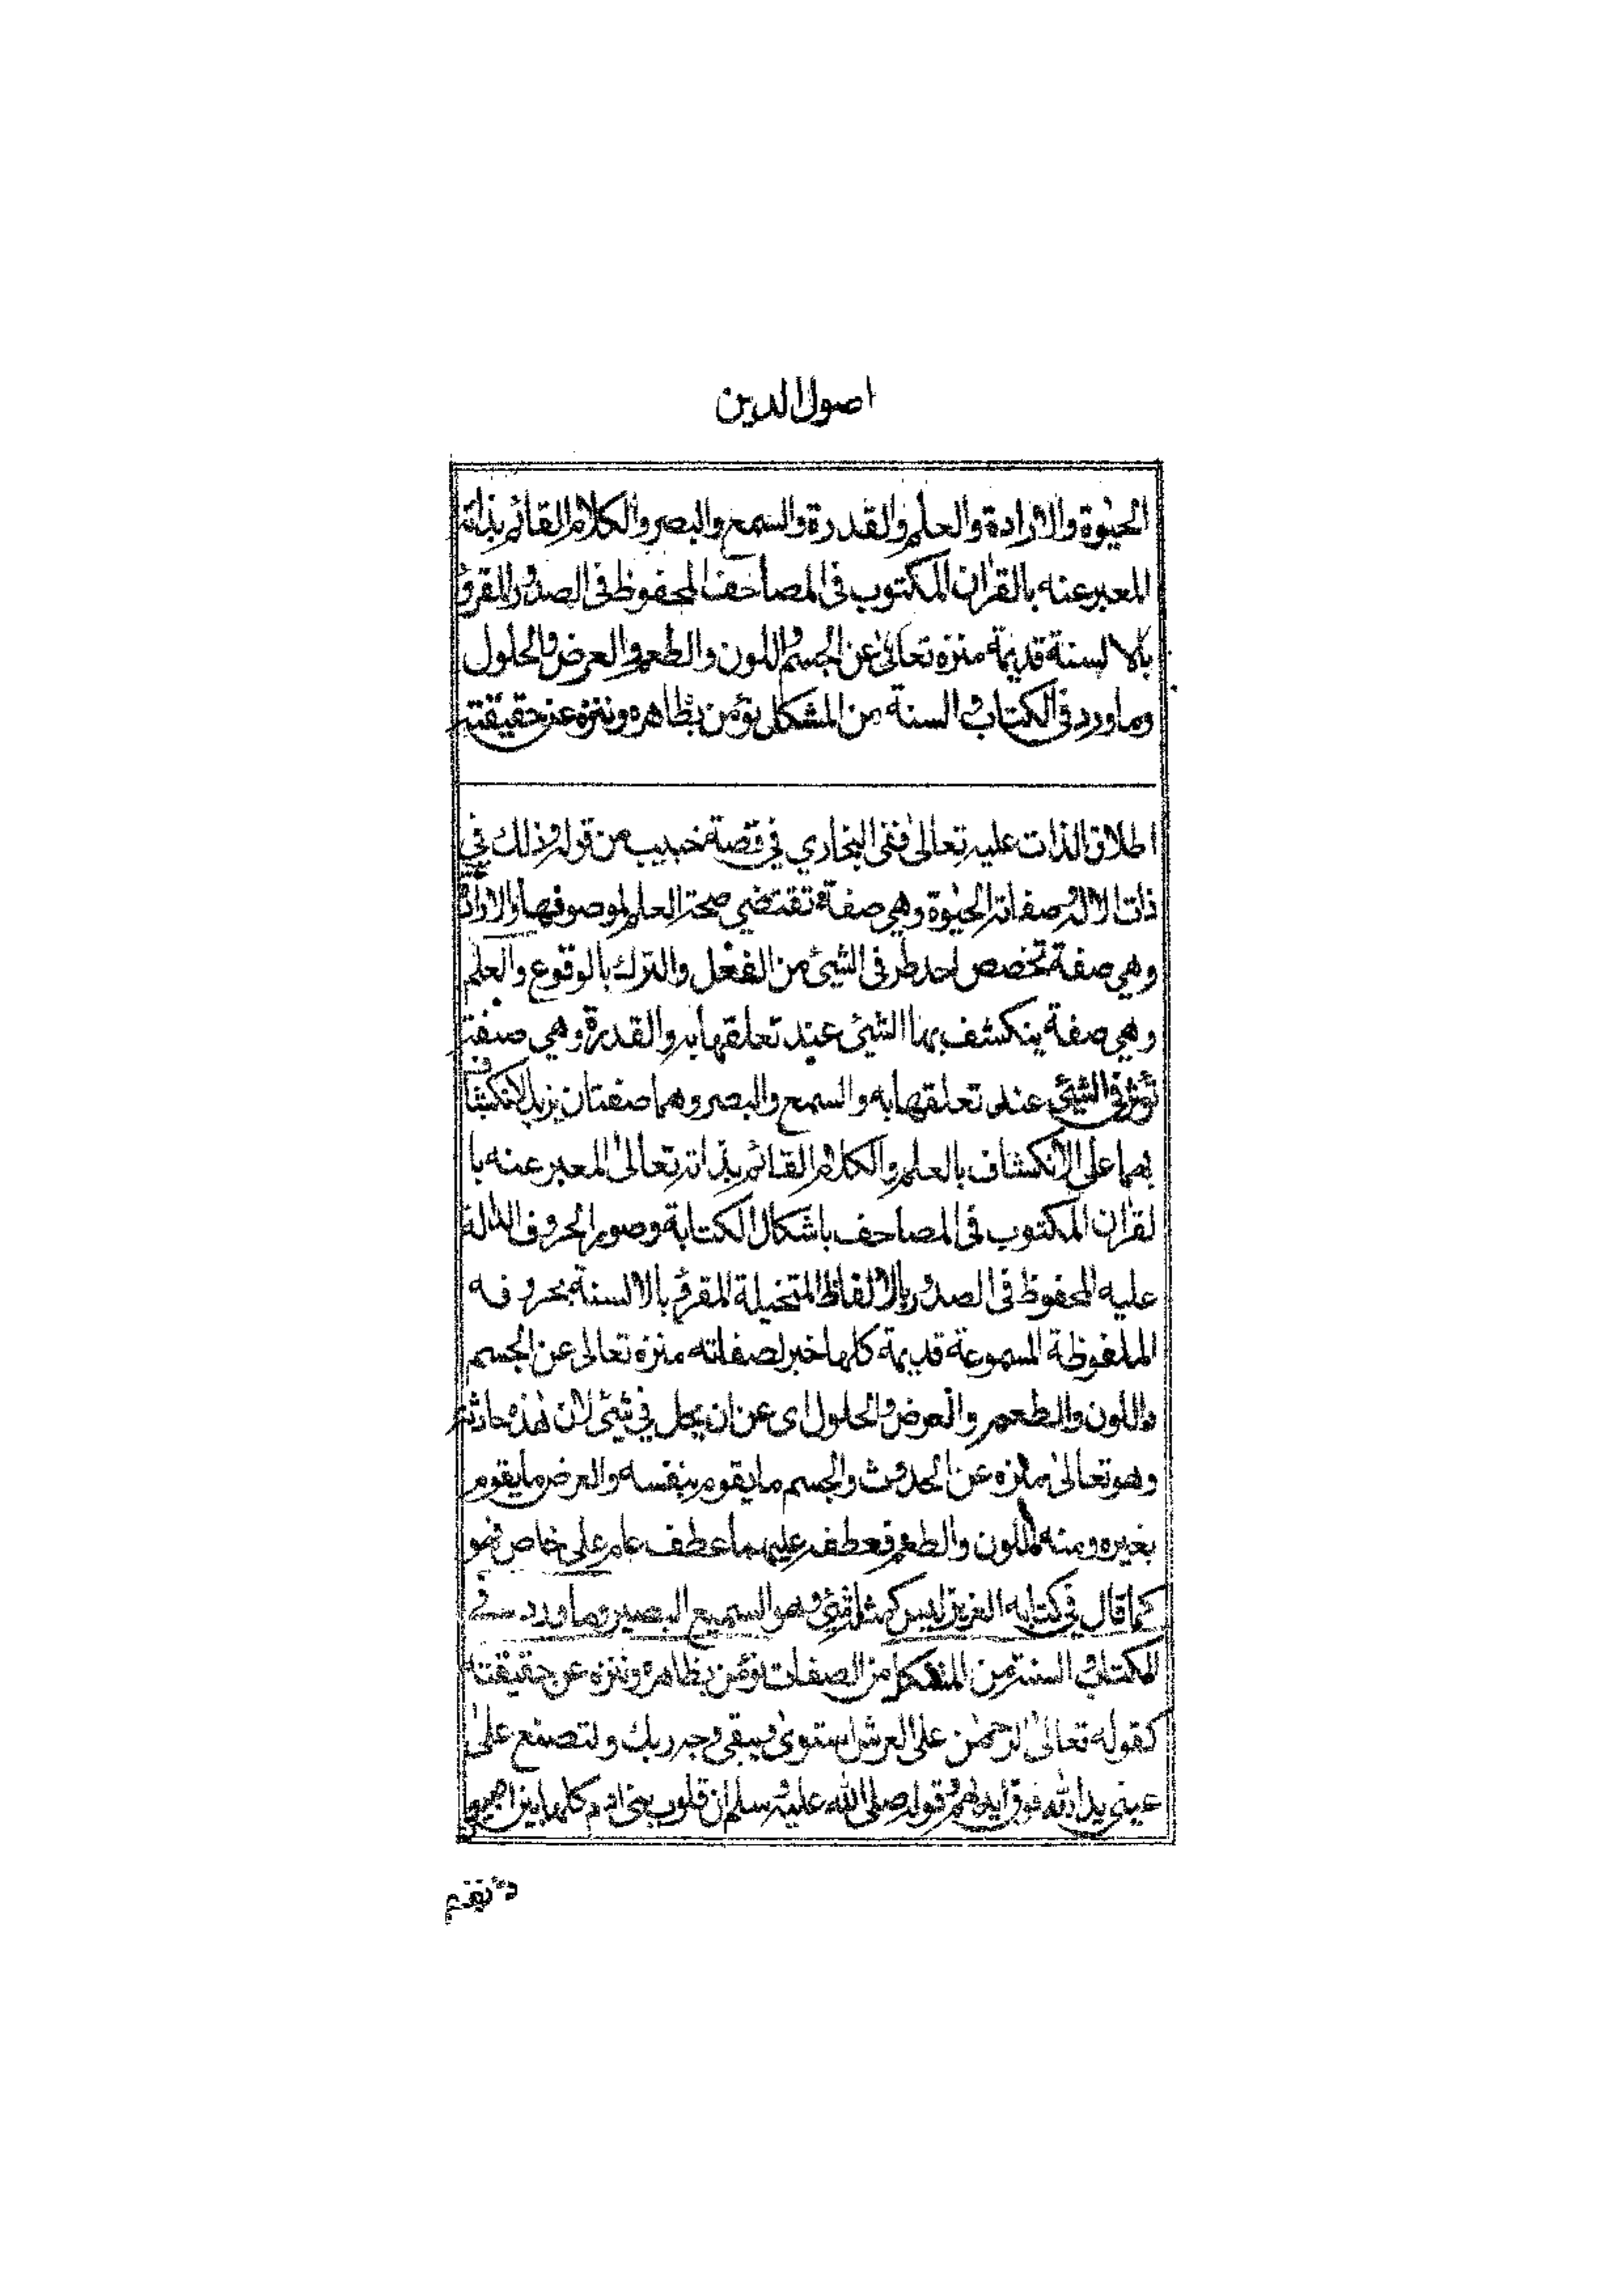 اصول الدين
الحيوة والارادة والعلم والقدرة والسمع والبصر والكلام القائم بذاته
المعبر عنه بالقران المكتوب فى المصاحف المحفوظ فى الصدور المقرؤ
بالالسنة قديمة منزه تعالىٰ عن الجسم واللون والطعم والعرض والحلول
وما ورد فى الكتاب و السنة من المشكل نؤمن بظاهره وننزه عن حقيقته
اطلاق الذات عليه تعالىٰ ففى البخاري في قصة خبيب من قوله وذلك في
ذات الاله وصفاته الحيٰوة وهي صفة تقتضي صحة العلم لموصوفها والارادة
وهي صفة تخصص احد طرفى الشيئ من الفعل والترك بالوقوع والعلم
وهي صفة ينكشف بها الشيئ عند تعلقها به والقدرة وهي صفة
تؤثر فى الشيئ عند تعلقها به والسمع والبصر وهما صفتان يزيد الانكشاف
بهما على الانكشاف بالعلم والكلام القائم بذاته تعالىٰ المعبر عنه با
لقران المكتوب فى المصاحف باشكال الكتابة وصور الحروف الدالة
عليه المحفوظ فى الصدور بالالفاظ المتخيلة المقرؤ بالالسنة بحروفه
الملفوظة المسموعة قديمة كلها خبر لصفاته منزه تعالىٰ عن الجسم
واللون والطعم والعرض والحلول اى عن ان يحل في شيئ لان هذه حادثة
وهو تعالىٰ منزه عن الحدوث والجسم ما يقوم بنفسه والعرض ما يقوم
بغيره ومنه اللون والطعم فعطفه عليهما عطف عام على خاص فهو
كما قال في كتابه العزيز ليس كمثله شيئ وهو السميع البصير وما ورد في
الكتاب و السنة من المشكل من الصفات نؤمن بظاهره وننزه عن حقيقته
كقوله تعالىٰ الرحمٰن على العرش استوىٰ ويبقى وجه ربك ولتصنع علىٰ
عيني يد الله فوق ايديهم وقوله صلى الله عليه وسلم ان قلوب بني ادم كلها بين اصبعين